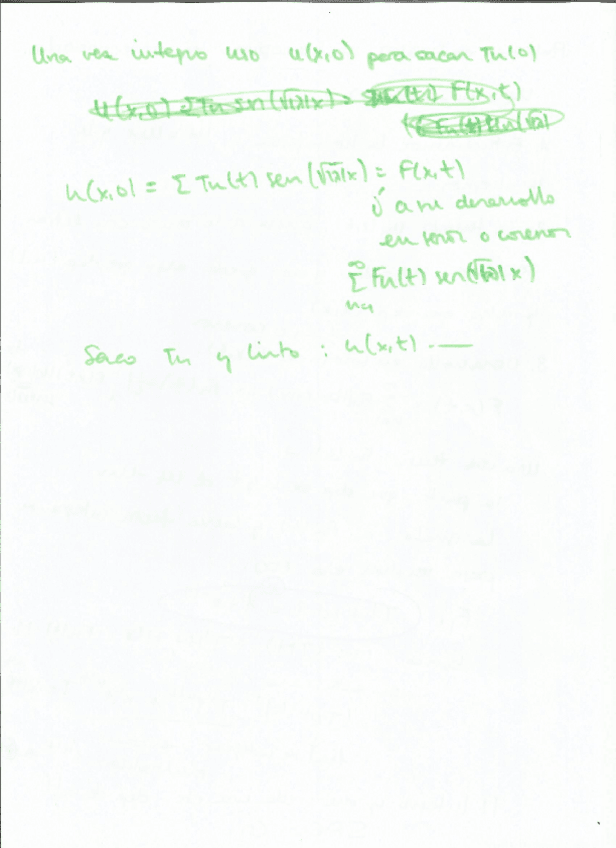 Una vez integro uso u(x,0) para sacar Tn(0)
u(x,0) = Σ Tn sen(√|λ|x) = F(x,t)
u(x,0) = Σ Tn(t) sen(√|λ|x) = F(x,t)
ó a su desarrollo
en senos o cosenos
∞
Σ Fn(t) sen(√|λ|x)
n=1
Saco Tn y listo : u(x,t) .—